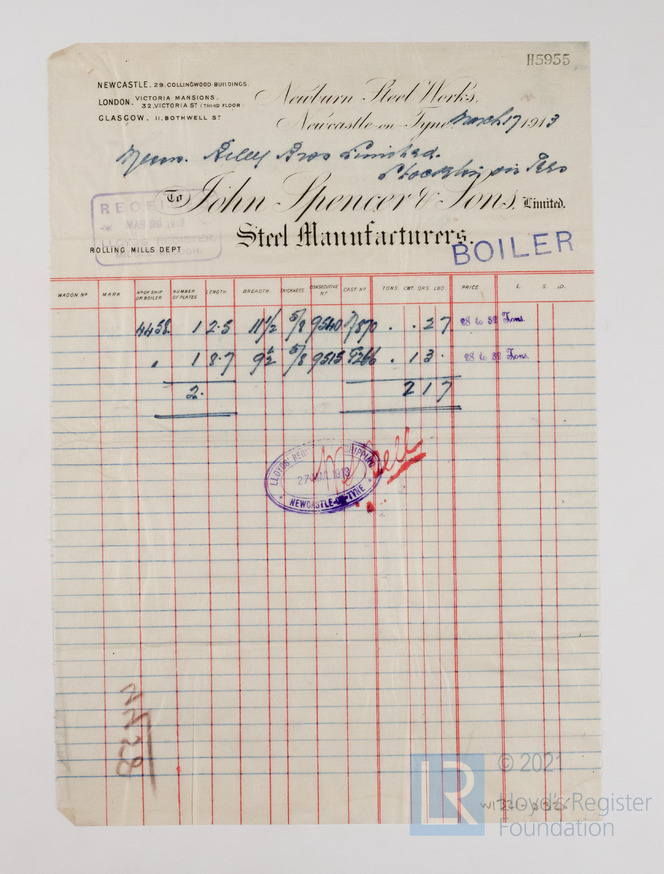 H5955
NEWCASTLE. 29. COLLINGWOOD BUILDINGS.
LONDON. VICTORIA MANSIONS. 32, VICTORIA ST (THIRD FLOOR
GLASGOW. 11, BOTHWELL ST
Newburn Steel Works,
Newcastle-on-Tyne March 17 1913
Messrs. Riley Bros Limited.
Stockton on Tees
To John Spencer & Sons, Limited.
Steel Manufacturers.
ROLLING MILLS DEPT
BOILER
WAGON No MARK No OF SHIP OR BOILER NUMBER OF PLATES LENGTH BREADTH THICKNESS CONSECUTIVE No CAST No TONS. CWT. QRS. LBS. PRICE £. S. D.
4458. 1 2.5 11 1/2 5/8 9540 . . 27 28 to 32 Tons.
" 1 8.7 9 1/2 5/8 9515 . 1 3 . 28 to 32 Tons.
2. 2 1 7
LLOYDS' REGISTER SHIPPING
27 MAR 1913
NEWCASTLE-ON-TYNE
© 2021
LR
Lloyd's Register
Foundation